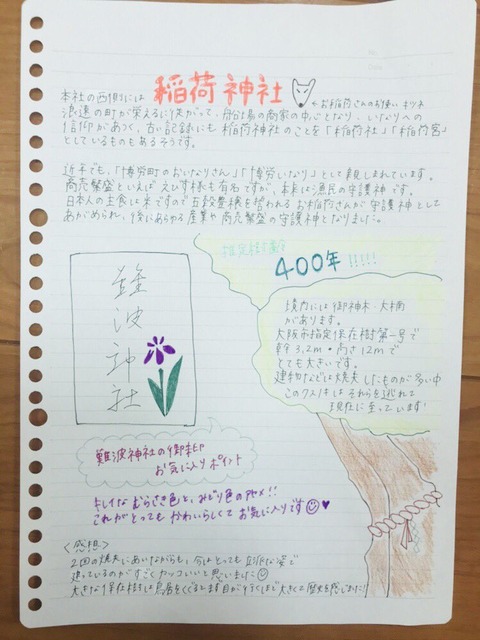 稲荷神社
←お稲荷さんのお使い キツネ
本社の西側には
浪速の町が栄えるに従がって、船場の商家の中心となり、いなりへの
信仰があつく、古い記録にも稲荷神社のことを「稲荷社」「稲荷宮」
としているものもあるそうです。
近年でも、「博労町のおいなりさん」「博労いなり」として親しまれています。
商売繁盛といえば えびす様も有名ですが、本来は漁民の守護神です。
日本人の主食は米ですので五穀豊穣を習われるお稲荷さんが守護神として
あがめられ、後にあらゆる産業や商売繁盛の守護神となりました。
推定樹齢
400年!!!!!
境内には御神木・大楠
があります。
大阪市指定保存樹第一号で
幹3.2m・高さ12mで
とても大きいです。
建物などは焼失したものが多い中
このクスノキはそれらを逃れて
現在に至っています
難波神社
難波神社の御朱印
お気に入りポイント
キレイなむらさき色と、みどり色の花〆!!
これがとってもかわいらしくてお気に入りです
<感想>
2回の焼失にあいながらも、今はとっても立派な姿で
建っているのがすごくカッコいいと思いました
大きな保存樹は鳥居をくぐるとすぐ目がそ行くほど大きくて歴史を感じました!